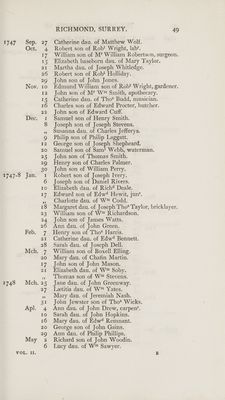 RICHMOND, SURREY. 49
1747 Sep. 27 Catherine dau. of Matthew Wolf.
Oct. 4 Robert son of Robt Wright, labr.
17 William son of Mr William Robertson, surgeon.
15 Elizabeth baseborn dau. of Mary Taylor.
21 Martha dau. of Joseph Whitledge.
26 Robert son of Robt Holliday.
29 John son of John Jones.
Nov. 10 Edmund William son of Robt Wright, gardener.
12 John son of Mr Wm Smith, apothecary.
15 Catherine dau. of Thos Budd, musician.
16 Charles son of Edward Procter, butcher.
22 John son of Edward Cuff.
Dec. 1 Samuel son of Henry Smith.
8 Joseph son of Joseph Stevens.
„ Susanna dau. of Charles Jefferya.
9 Philip son of Philip Laggatt.
12 George son of Joseph Shepheard.
20 Samuel son of Saml Webb, waterman.
25 John son of Thomas Smith.
29 Henry son of Charles Palmer.
30 John son of William Perry.
1747-8 Jan. 1 Robert son of Joseph Ivery.
6 Joseph son of Daniel Rivers.
10 Elizabeth dau. of Richd Deale.
17 Edward son of Edwd Hewit, junr.
„ Charlotte dau. of Wm Codd.
18 Margaret dau. of Joseph Thos Taylor, bricklayer.
23 William son of Wm Richardson.
24 John son of James Watts.
26 Ann dau. of John Green.
Feb. 7 Henry son of Thos Harris.
21 Catherine dau. of Edwd Bennett.
28 Sarah dau. of Joseph Dell.
Mch. 7 William son of Boxell Elling.
20 Mary dau. of Chafin Martin.
17 John son of John Mason.
21 Elizabeth dau. of Wm Soby.
„ Thomas son of Wm Stevens.
1748 Mch. 25 Jane dau. of John Greenway.
27 Lætitia dau. of Wm Yates.
„ Mary dau. of Jeremiah Nash.
31 John Jewster son of Thos Wicks.
Apl. 4 Ann dau. of John Drew, carpenr.
10 Sarah dau. of John Hopkins.
16 Mary dau. of Edwd Remnant.
20 George son of John Gains.
29 Ann dau. of Philip Phillips.
May 2 Richard son of John Woodin.
6 Lucy dau. of Wm Sawyer.
VOL. II.